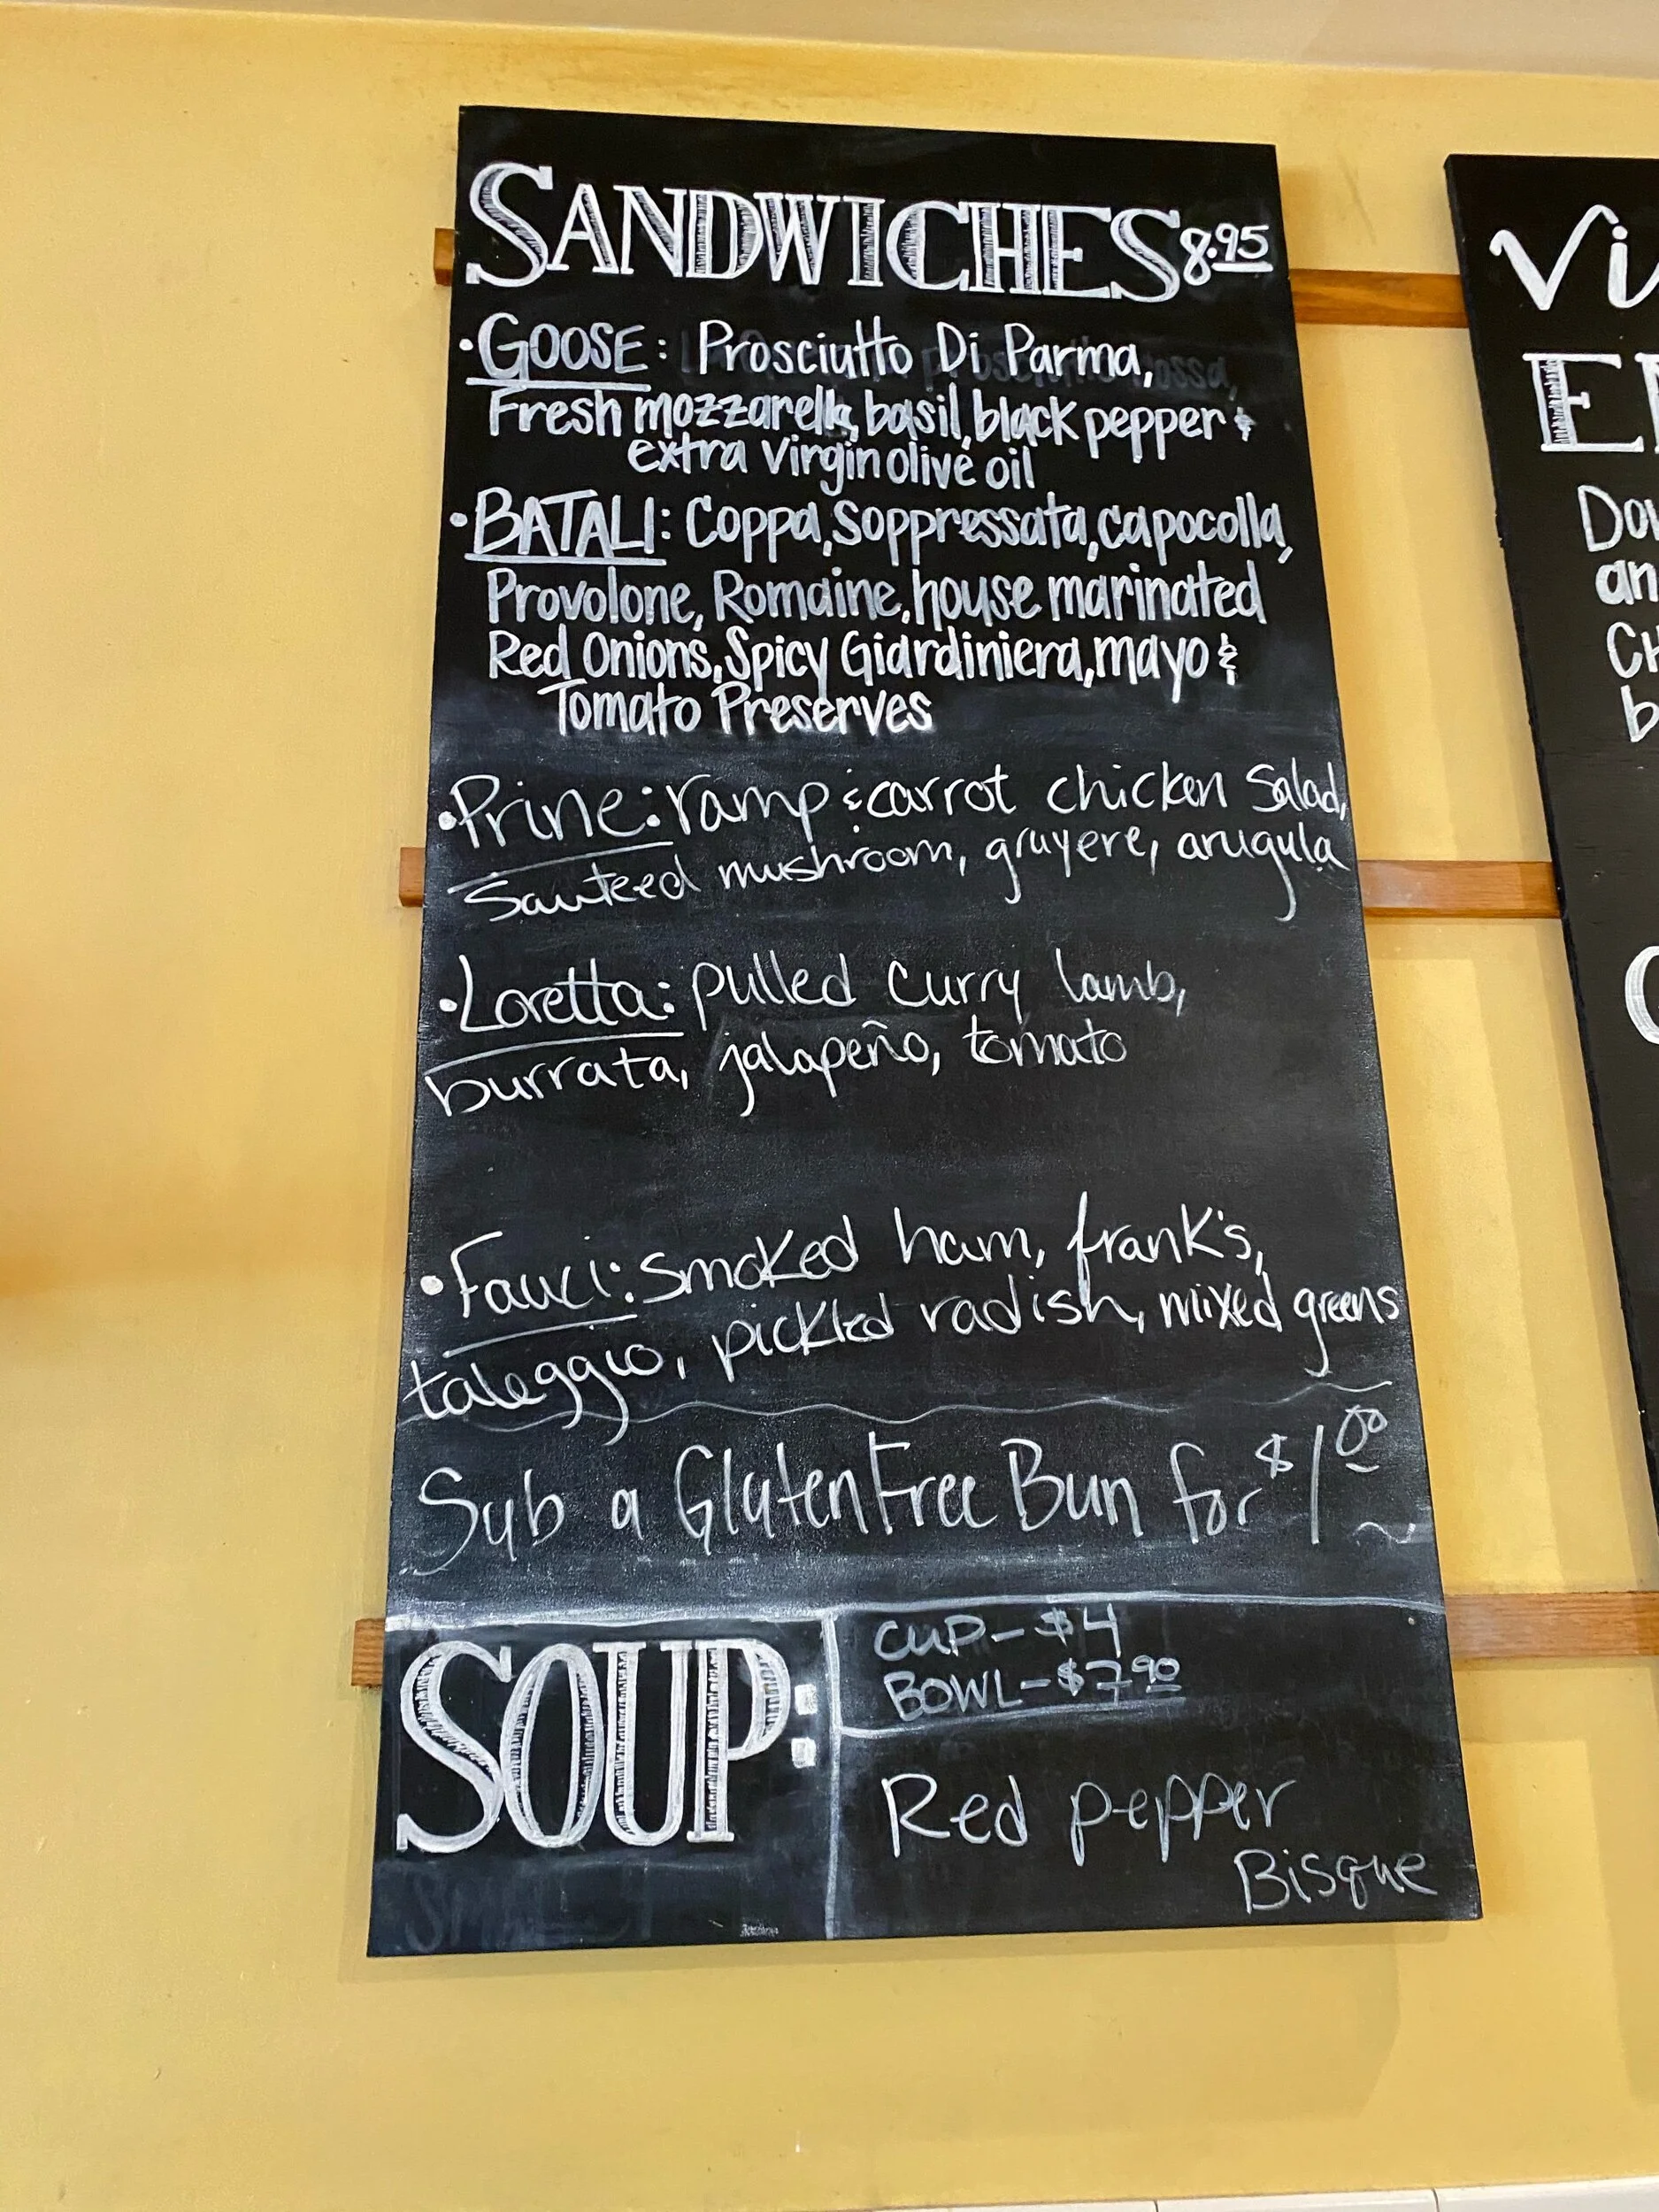 SANDWICHES 8.95
• GOOSE: Prosciutto Di Parma,
Fresh mozzarella, basil, black pepper &
extra virgin olive oil
• BATALI: Coppa, Soppressata, capocolla,
Provolone, Romaine, house marinated
Red Onions, Spicy Giardiniera, mayo &
Tomato Preserves
• Prine: ramp & carrot chicken Salad,
Sauteed mushroom, gruyere, arugula
• Loretta: pulled curry lamb,
burrata, jalapeño, tomato
• Fauci: smoked ham, frank's,
taleggio, pickled radish, mixed greens
Sub a Gluten Free Bun for $1.00 ~
SOUP:
CUP - $4
BOWL - $7.90
Red pepper
Bisque
Vi
E
an
b